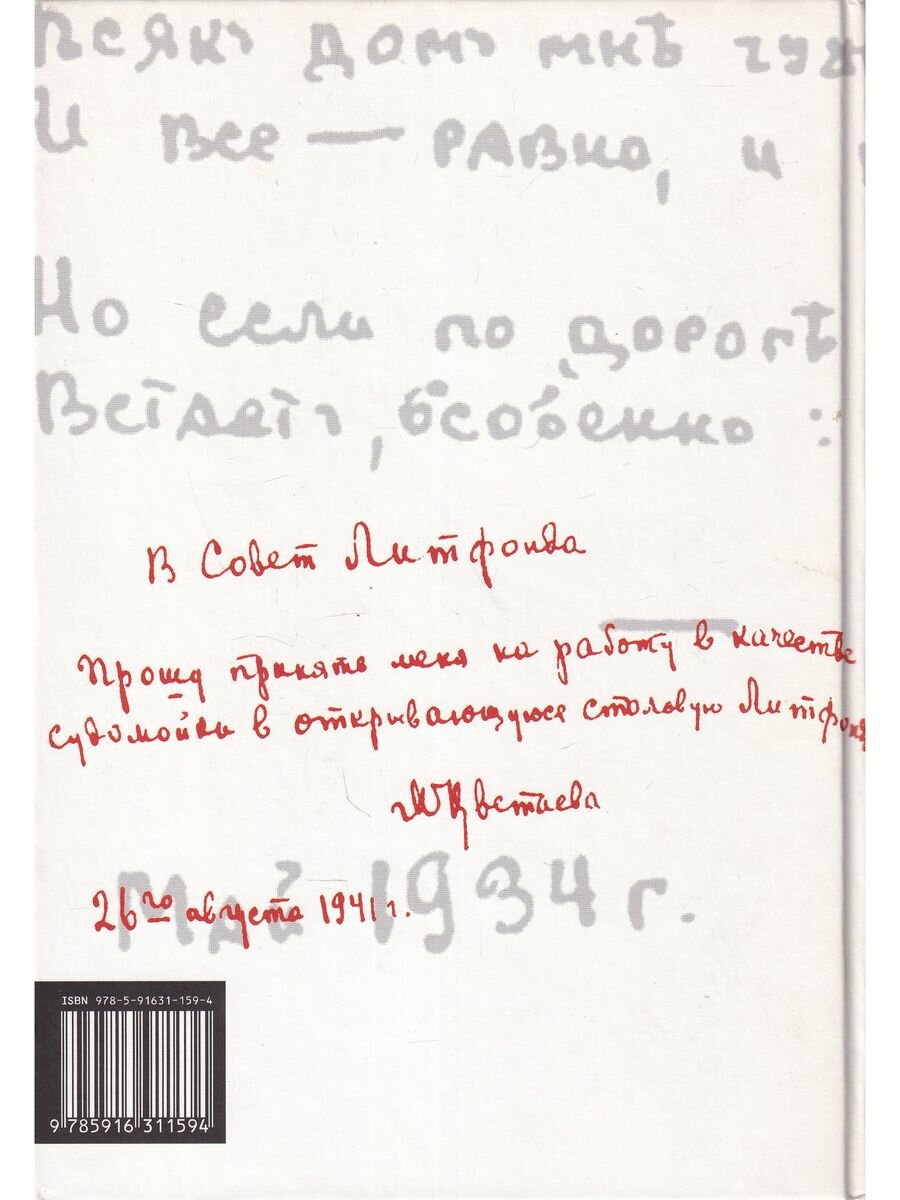 Всякъ домъ мнѣ чуж
И все — равно, и
Но если по дорогѣ
Встаетъ, особенно :
В Совет Литфонда
Прошу принять меня на работу в качестве
судомойки в открывающуюся столовую Литфонда
МЦветаева
Май 1934 г.
26го августа 1941 г.
ISBN 978-5-91631-159-4
9 785916 311594